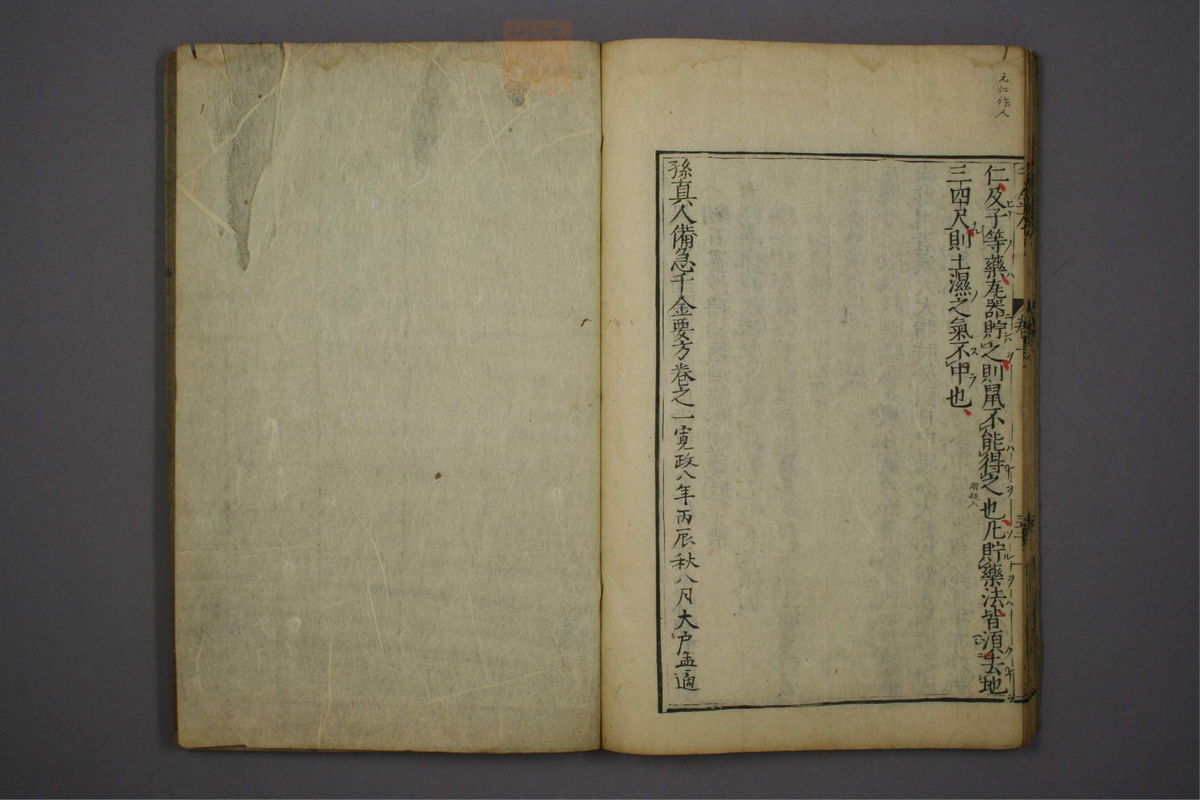 元仁作人
仁及子等藥瓦器貯之則鼠不能得之也凡貯藥法皆須去地
三四尺則土濕之氣不中也
孫真人備急千金要方卷之一寛政八年丙辰秋八月大戸孟適